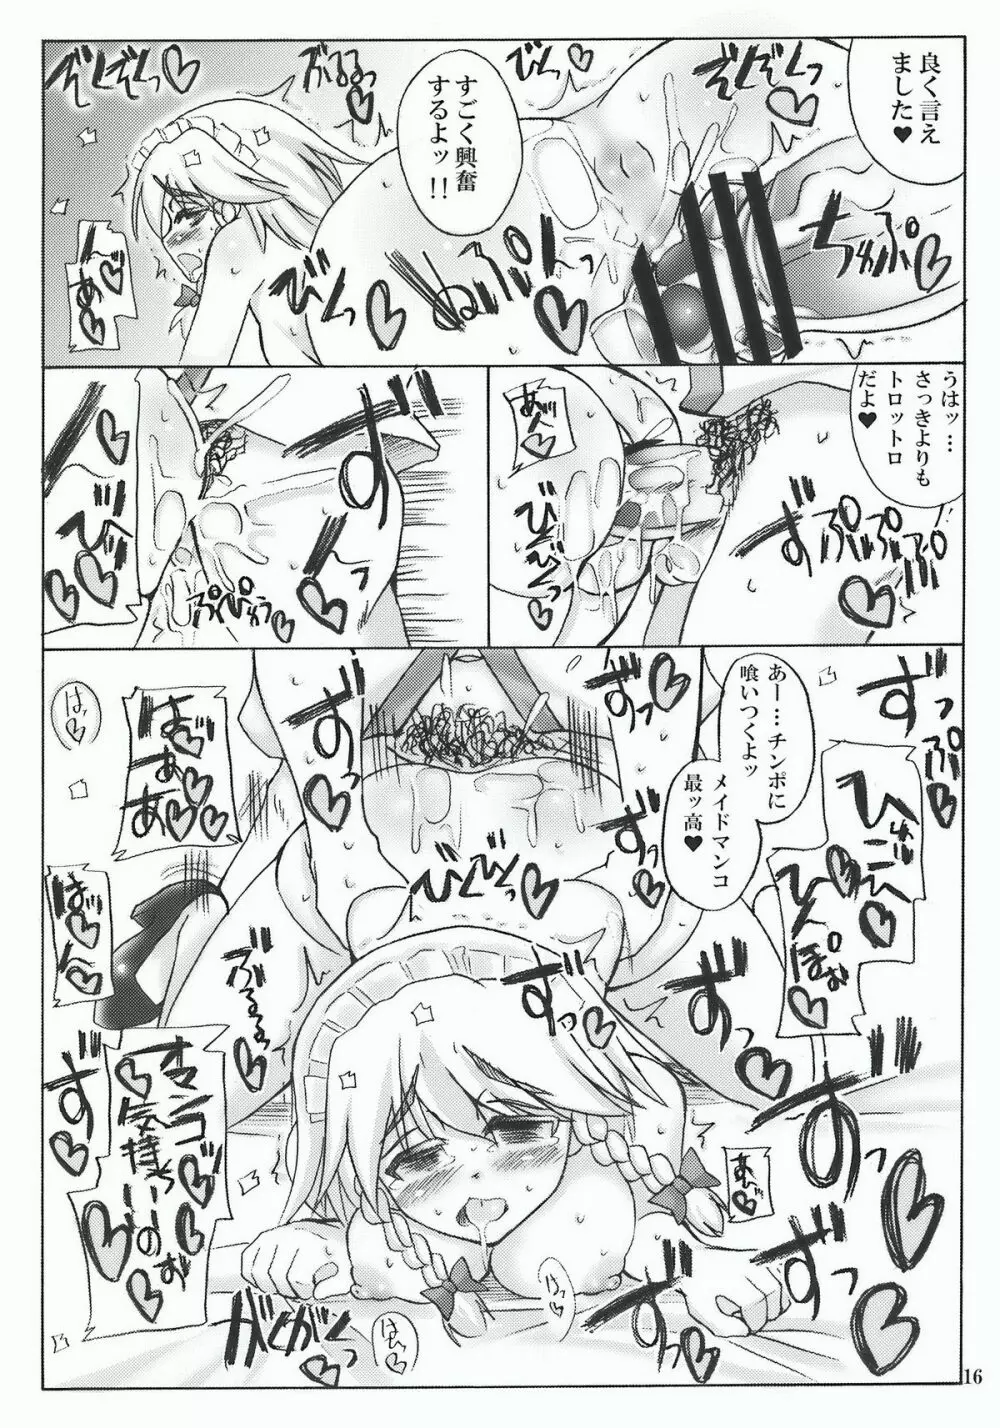 良く言え
ました♥
すごく興奮
するよッ
!!
ぞくぞくっ
ぶるるっ
びくっ
ぞくぞくっ
ちゅぷっ
ぬぷんっ
びくっ
あ
うはッ…
さっきよりも
トロットロ
だよ♥
あ
ずぷぷぷ
びくびくっ
ずーっ
びくっ
ぷぴゅっ
あー…チンポに
喰いつくよッ
メイドマンコ
最ッ高♥
ずっぷ
ずっ
ずっ
はっ
はぁ
ああ
びくびくっ
はっ
ぶるるる
ずっ
ずっ
マンコ
気持ちいいのぉ
ずっ
ずっ
ずっ
がくがくっ
はっ
はっ
16